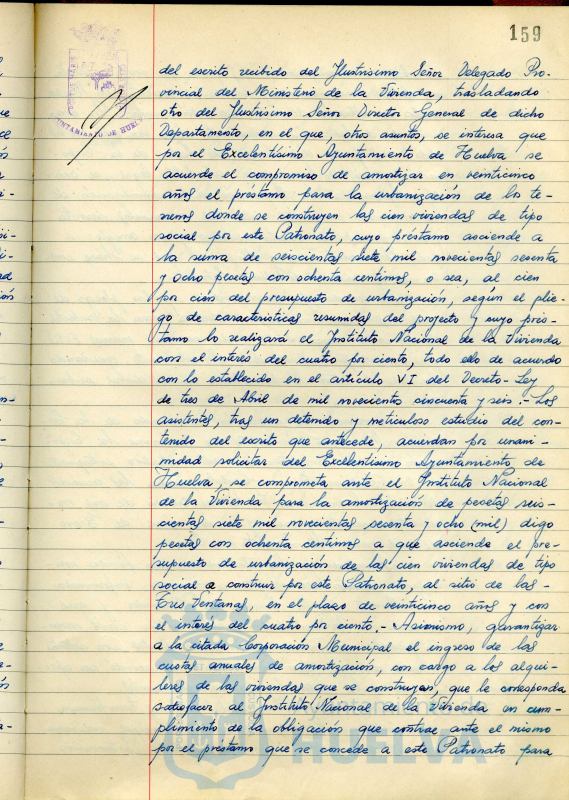 159
AYUNTAMIENTO DE HUELVA
del escrito recibido del Ilustrísimo Señor Delegado Pro-
vincial del Ministerio de la Vivienda, trasladando
otro del Ilustrísimo Señor Director General de dicho
Departamento, en el que, otros asuntos, se interesa que
por el Excelentísimo Ayuntamiento de Huelva se
acuerde el compromiso de amortizar en veinticinco
años el préstamo para la urbanización de los te-
rrenos donde se construyen las cien viviendas de tipo
social por este Patronato, cuyo préstamo asciende a
la suma de seiscientas siete mil novecientas sesenta
y ocho pesetas con ochenta centimos, o sea, al cien
por cien del presupuesto de urbanización, según el plie-
go de características resumidas del proyecto y cuyo prés-
tamo lo realizará el Instituto Nacional de la Vivienda
con el interés del cuatro por ciento, todo ello de acuerdo
con lo establecido en el artículo VI del Decreto-Ley
de tres de Abril de mil novecientos cincuenta y seis.- Los
asistentes, tras un detenido y meticuloso estudio del con-
tenido del escrito que antecede, acuerdan por unani-
midad solicitar del Excelentísimo Ayuntamiento de
Huelva, se comprometa ante el Instituto Nacional
de la Vivienda para la amortización de pesetas seis-
cientas siete mil novecientas sesenta y ocho (mil) digo
pesetas con ochenta centimos a que asciende el pre-
supuesto de urbanización de las cien viviendas de tipo
social a construir por este Patronato, al sitio de las
Tres Ventanas, en el plazo de veinticinco años y con
el interés del cuatro por ciento.- Asimismo, garantizar
a la citada Corporación Municipal el ingreso de las
cuotas anuales de amortización, con cargo a los alqui-
leres de las viviendas que se construyan, que le corresponda
satisfacer al Instituto Nacional de la Vivienda en cum-
plimiento de la obligación que contrae ante el mismo
por el préstamo que se concede a este Patronato para
HUELVA